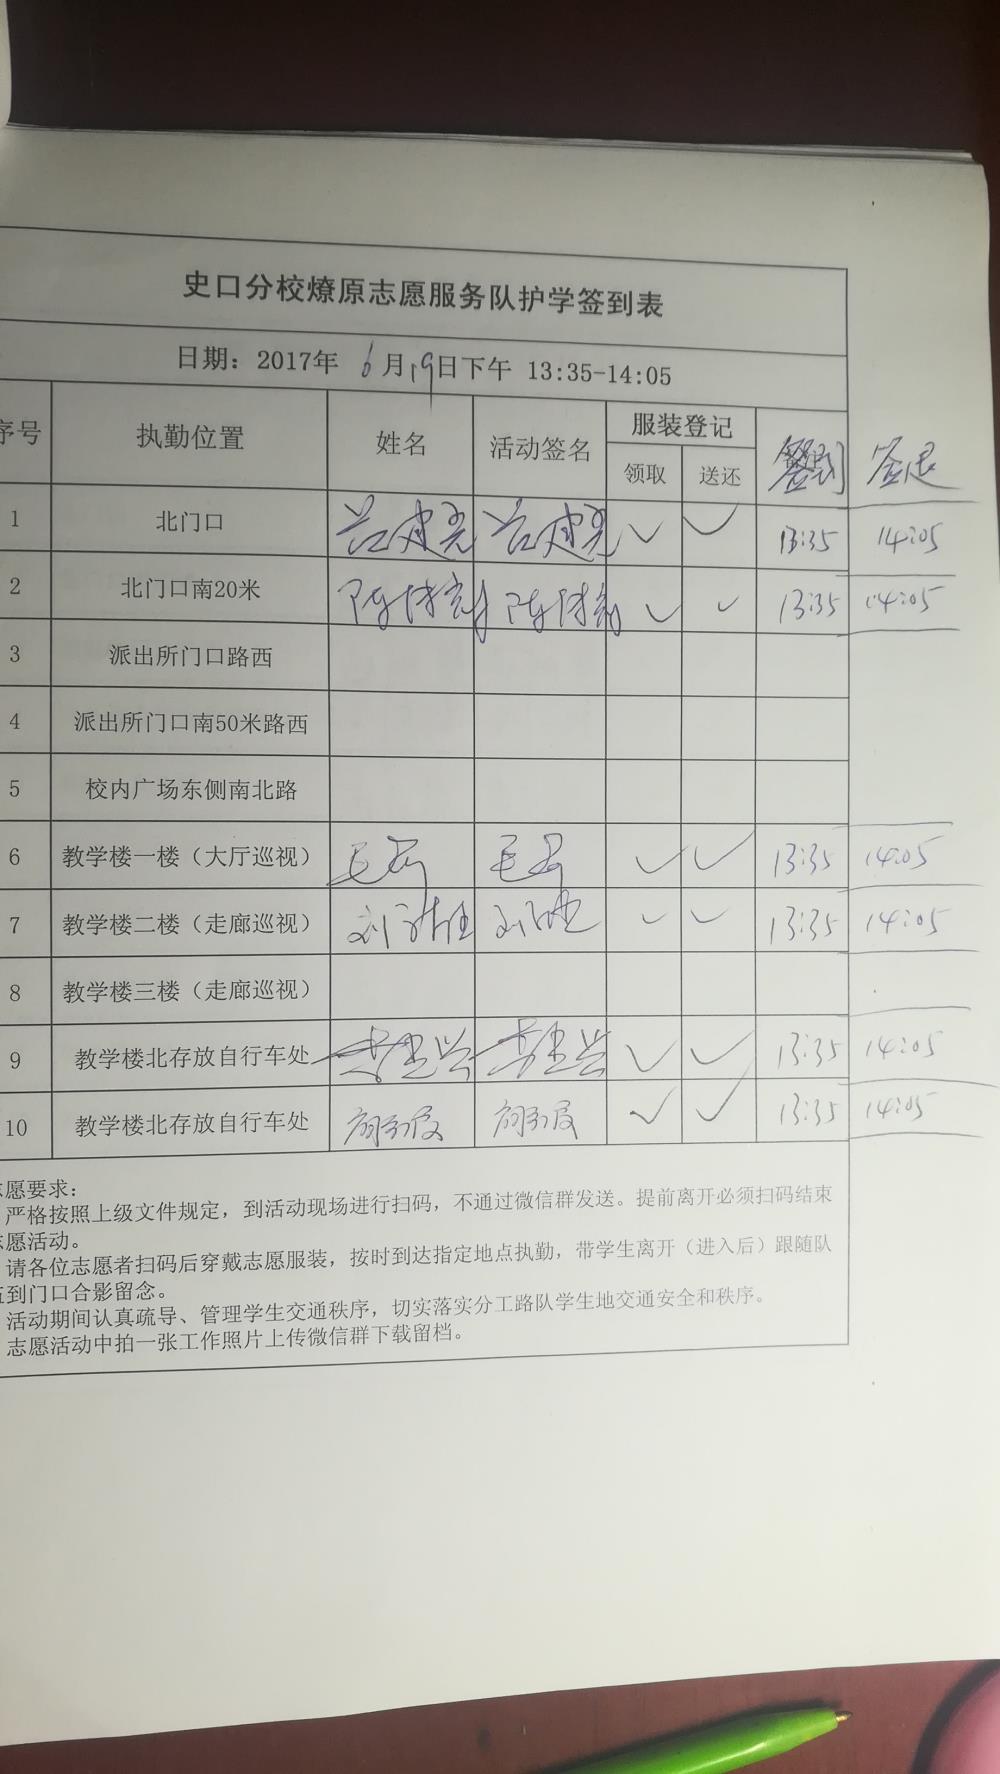 史口分校燎原志愿服务队护学签到表
日期：2017年 6月19日下午 13:35-14:05
序号 执勤位置 姓名 活动签名 服装登记 签到 签退
领取 送还
1 北门口 ✓ ✓ 13:35 14:05
2 北门口南20米 ✓ ✓ 13:35 14:05
3 派出所门口路西
4 派出所门口南50米路西
5 校内广场东侧南北路
6 教学楼一楼（大厅巡视） ✓ ✓ 13:35 14:05
7 教学楼二楼（走廊巡视） ✓ ✓ 13:35 14:05
8 教学楼三楼（走廊巡视）
9 教学楼北存放自行车处 ✓ ✓ 13:35 14:05
10 教学楼北存放自行车处 ✓ ✓ 13:35 14:05
志愿要求：
严格按照上级文件规定，到活动现场进行扫码，不通过微信群发送。提前离开必须扫码结束
志愿活动。
请各位志愿者扫码后穿戴志愿服装，按时到达指定地点执勤，带学生离开（进入后）跟随队
伍到门口合影留念。
活动期间认真疏导、管理学生交通秩序，切实落实分工路队学生地交通安全和秩序。
志愿活动中拍一张工作照片上传微信群下载留档。